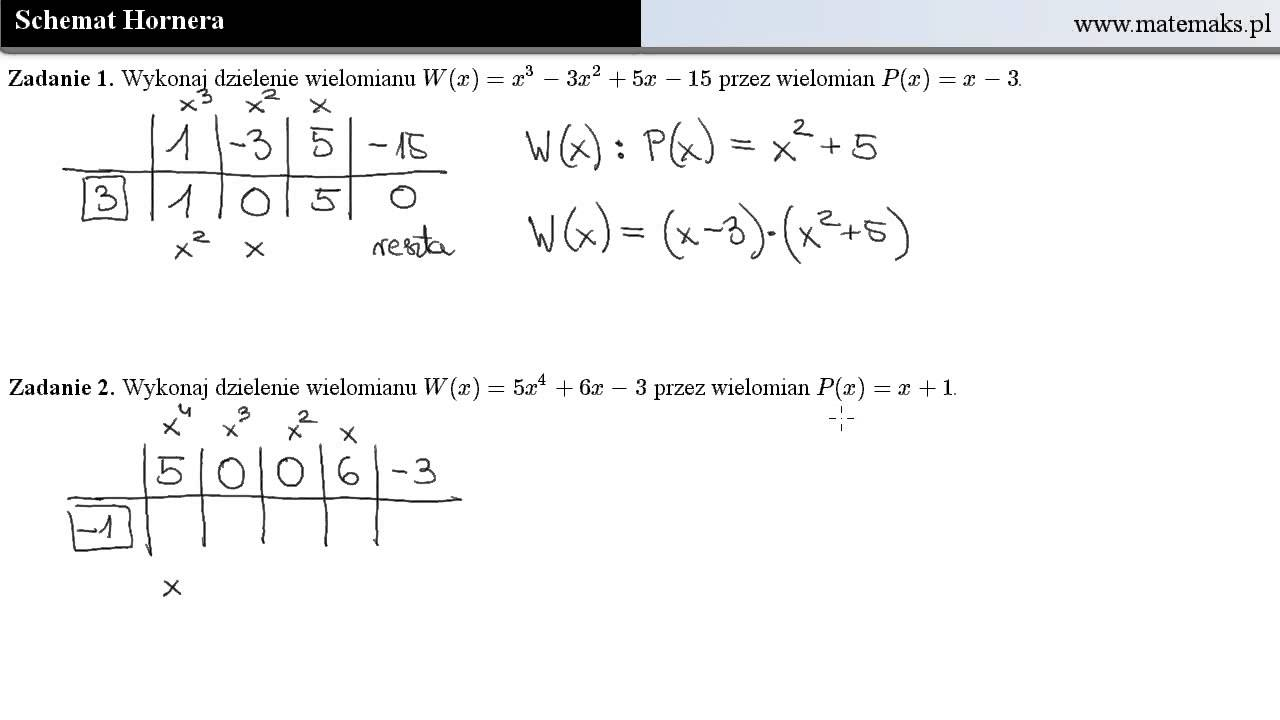 Schemat Hornera
www.matemaks.pl
Zadanie 1. Wykonaj dzielenie wielomianu W(x) = x³ − 3x² + 5x − 15 przez wielomian P(x) = x − 3.
x³ x² x
1 -3 5 -15
3 1 0 5 0
x² x reszta
W(x) : P(x) = x² + 5
W(x) = (x-3)·(x²+5)
Zadanie 2. Wykonaj dzielenie wielomianu W(x) = 5x⁴ + 6x − 3 przez wielomian P(x) = x + 1.
x⁴ x³ x² x
5 0 0 6 -3
-1
x